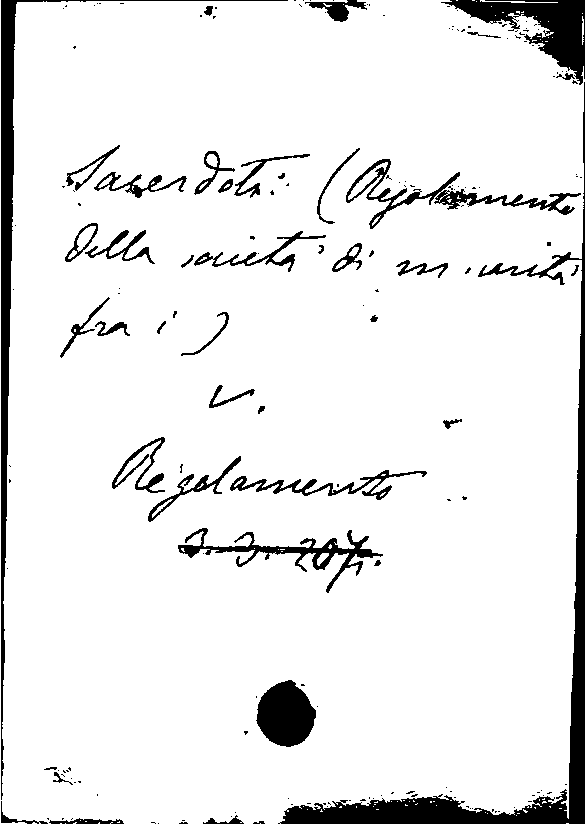 Sacerdoti (Regolamento
della società di
fra i)
V.
Regolamento
3. 3. 207.